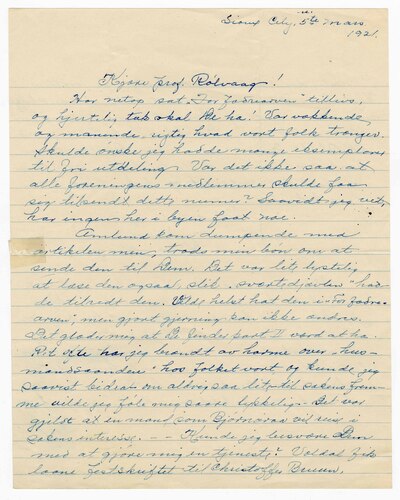 Sioux City, 5te mars
1921.
Kjære prof. Rölvaag!
Har netop læst "For Fædrearven" tillivs,
og hjertelig tak skal De ha! Var vækkende
og manende, rigtig hvad vort folk trænger.
Skulde ønske jeg hadde mange eksemplarer
til fri utdeling. Var det ikke saa, at
alle foreningens medlemmer skulde faa
seg tilsendt dette nummer? Saavidt jeg vet,
har ingen her i byen faat noe.
Amlund kom dumpende med
artikelen min, trods min bøn om at
sende den til Dem. Det var lets
at læse den ogsaa, slik "svartedjevlen" had-
de tilredt den. Vilde helst hat den i "For Fædre-
arven", men gjort gjerning kan ikke andres.
Det glæder mig at De finder part II værd at ha.
Ret ofte har jeg brændt av harme over "hus-
mandsaanden" hos folket vort og kunde jeg
saavist bidra om aldrig saa lit til sakens frem-
me vilde jeg føle mig saare lykkelig. Det var
gjildt at en mand som Bjørnaraa vil
sakens interesse. — Kunde jeg besvære Dem
med at gjøre mig en tjeneste? Voldal fik
laane festskriftet til Christoffer Bruun,